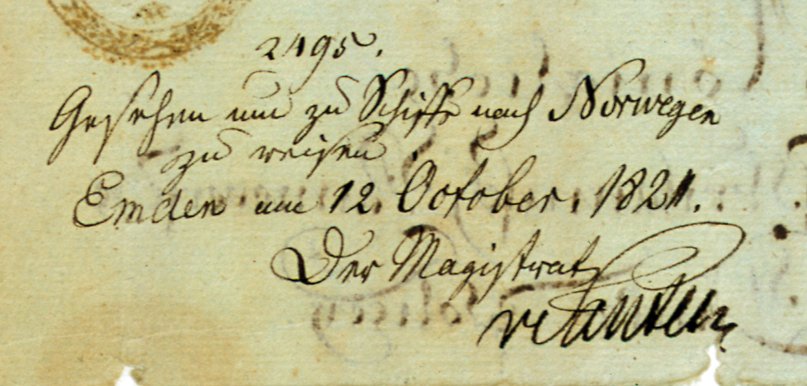 2495.
Gesehen um zu Schiffe nach Norwegen
zu reisen
Emden am 12. October. 1821.
Der Magistrat